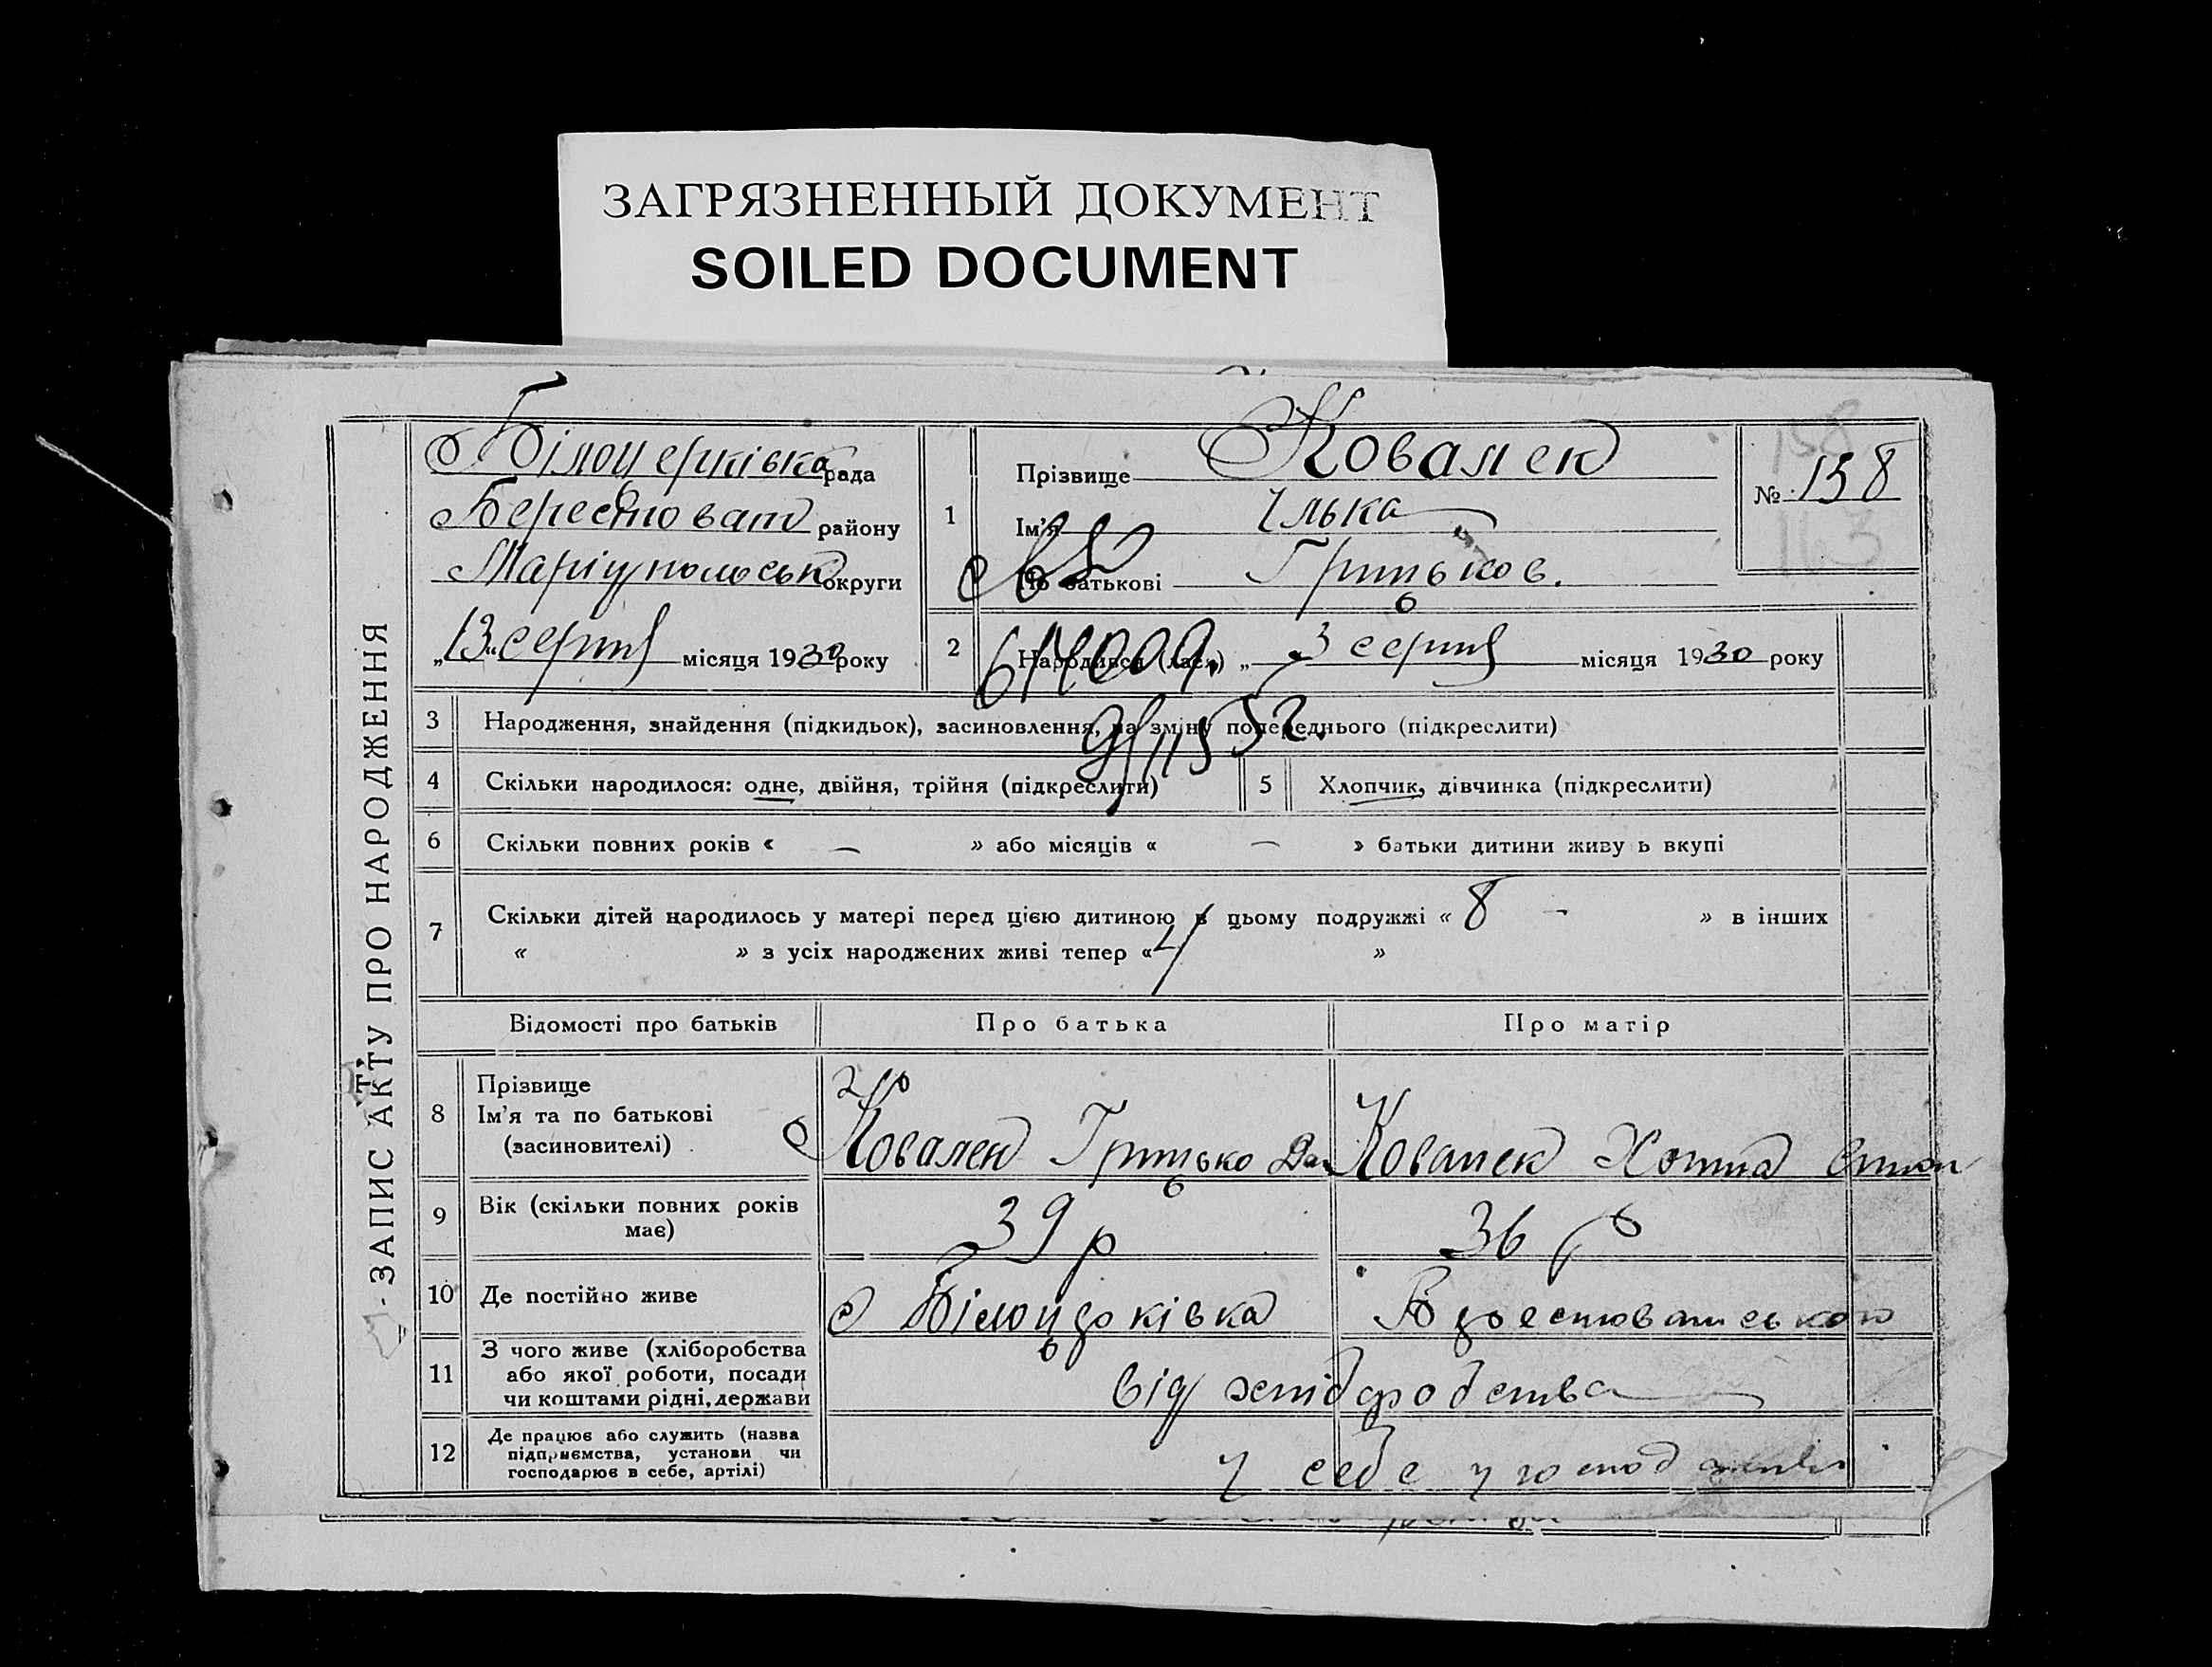 ЗАГРЯЗНЕННЫЙ ДОКУМЕНТ
SOILED DOCUMENT
ЗАПИС АКТУ ПРО НАРОДЖЕННЯ
Білоцерківка рада
Берестоват району
Маріупольськ округи
„13“ серпня місяця 1930 року
1
Прізвище Ковален
Ім'я Ілька
По батькові Грицьков.
№ 158
158
163
2 Народився (лася) „ 3 серпня місяця 1930 року
3 Народження, знайдення (підкидьок), засиновлення, на зміну попереднього (підкреслити)
4 Скільки народилося: одне, двійня, трійня (підкреслити)
5 Хлопчик, дівчинка (підкреслити)
6 Скільки повних років « — » або місяців « — » батьки дитини живу ь вкупі
7 Скільки дітей народилось у матері перед цією дитиною в цьому подружжі « 8 — » в інших
« » з усіх народжених живі тепер « 4 »
Відомості про батьків Про батька Про матір
8 Прізвище
Ім'я та по батькові
(засиновителі)
Ковален Грицько Дан
Ковален Хотина
9 Вік (скільки повних років
має)
39 р
36 р
10 Де постійно живе
с Білоцерківка
Берестоватського
11 З чого живе (хліборобства
або якої роботи, посади
чи коштами рідні, держави
від хліборобства
12 Де працює або служить (назва
підприємства, установи чи
господарює в себе, артілі)
у себе у господарстві